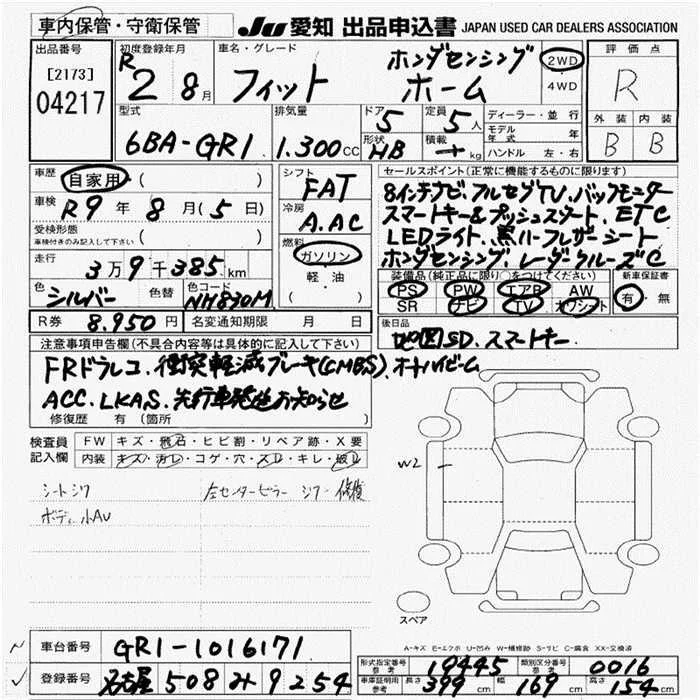 車内保管・守衛保管 JU 愛知 出品申込書 JAPAN USED CAR DEALERS ASSOCIATION
出品番号 初度登録年月 車名・グレード ホンダセンシング 2WD 評価点
[2173] R2 8月 フィット ホーム 4WD R
04217
型式 排気量 ドア 定員 ディーラー・並行 外装 内装
6BA-GR1 1.300cc 5 5人 モデル年式 年 B B
形状 HB 積載 kg ハンドル 左・右
車歴 自家用 ( ) シフト FAT セールスポイント(正常に機能するものに限ります)
車検 R9年8月(5日) 冷房 A.AC 8インチナビ.フルセグTV.バックモニター
受検形態 ( ) スマートキー&プッシュスタート.ETC
車検付きのみ記入して下さい 燃料 LEDライト.黒ハーフレザーシート
走行 3万9千385km ガソリン ホンダセンシング レーダークルーズC
色 シルバー 色替 色コード NH830M 軽・油 ( )
装備品(純正品に限り○をつけてください) 新車保証書
PS PW エアB AW 有・無
SR ナビ TV カワシート
R券 8.950円 名変通知期限 月 日 後日品 地図SD.スマートキー
注意事項申告欄(不具合内容等は具体的に記入して下さい)
FRドラレコ.衝突軽減ブレーキ(CMBS).オートハイビーム
ACC.LKAS.先行車発進お知らせ
修復歴 有 (箇所 )
検査員 FW キズ・飛石・ヒビ割・リペア跡・X要
記入欄 内装 キズ・汚レ・コゲ・穴・スレ・キレ・破レ
W2
シートシワ 左センターピラー シワ・修復
ボディ小AU
スペア
A-キズ E-エクボ U-凹み W-補修跡 S-サビ C-腐食 XX-交換済
車台番号 GR1-1016171
形式指定番号 参考 19445 類別区分番号 参考 0016
登録番号 名古屋 508 み 9254
車庫証明用 参考 長さ 399cm 幅 169cm 高さ 154cm